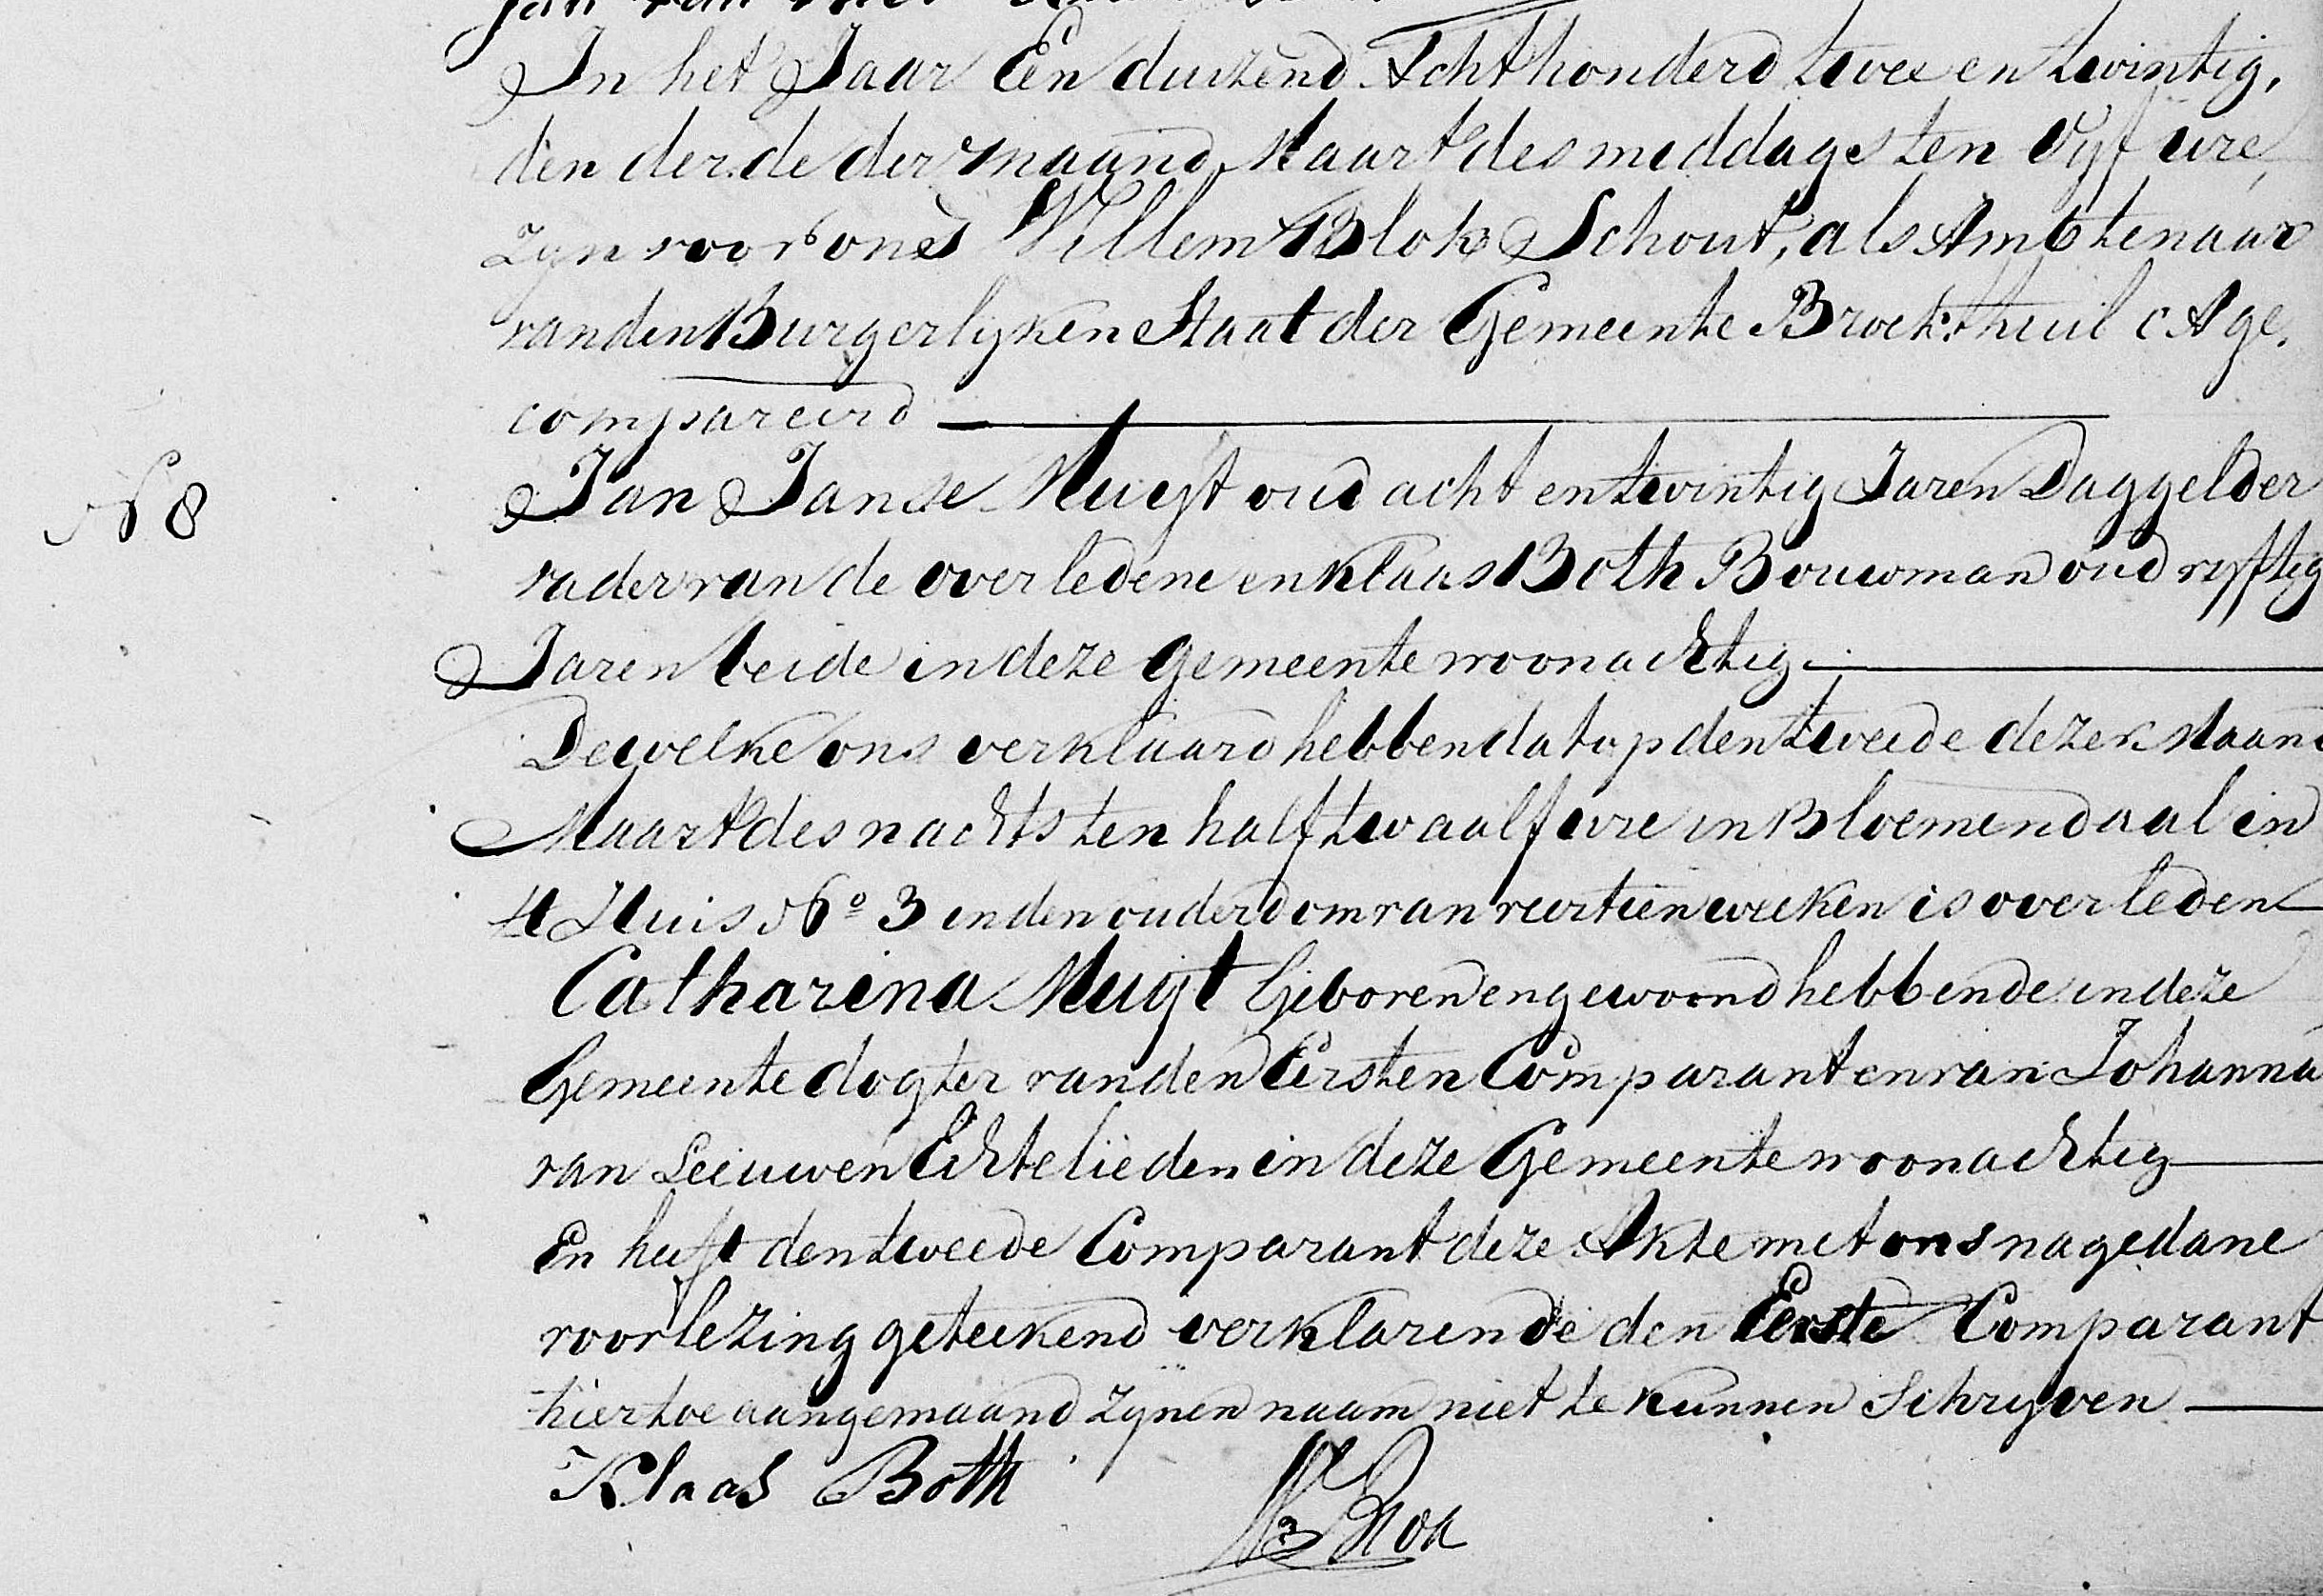 Jan van
In het Jaar Een duizend Achthonderd twee en twintig,
den derde der maand Maart des middags ten vyf ure,
zyn voor ons Willem Blok Schout, als Ambtenaar
van den Burgerlyken Staat der Gemeente Broek: thuil c A ge.
compareerd
N 8
Jan Janse Muyt oud acht en twintig Jaren Daggelder
vader van de overledene en Klaas Both Bouwman oud vyftig
Jaren beide in deze gemeente woonachtig.
Dewelke ons verklaard hebben dat op den tweede dezer Maand
Maart des nachts ten half twaalf ure in Bloemendaal in
't Huis No 3 in den ouderdom van veertien weeken is overleden
Catharina Muyt Geboren en gewoond hebbende in deze
Gemeente dogter van den Eersten Comparant en van Johanna
van Leeuwen Echtelieden in deze Gemeente woonachtig
En heeft den tweede Comparant deze Akte met ons na gedane
voorlezing geteekend verklarende den Eerste Comparant
hier toe aangemaand zynen naam niet te kunnen Schryven
Klaas Both
W Blok